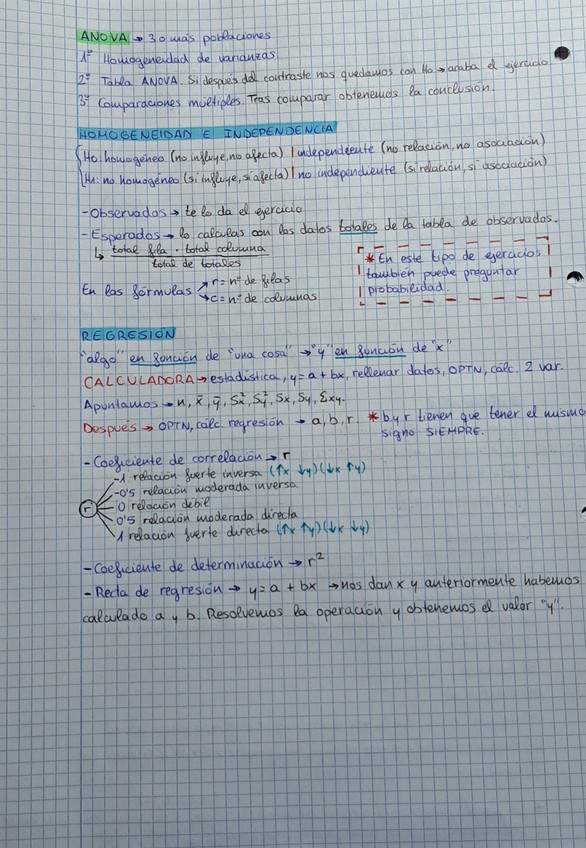 ANOVA → 3 o más poblaciones
1º Homogeneidad de varianzas
2º Tabla ANOVA. Si después del contraste nos quedamos con Ho → acaba el ejercicio
3º Comparaciones múltiples. Tras comparar obtenemos la conclusión.
HOMOGENEIDAD E INDEPENDENCIA
Ho: homogéneo (no influye, no afecta) | independiente (no relación, no asociación)
H1: no homogéneo (sí influye, sí afecta) | no independiente (sí relación, sí asociación)
- Observados → te lo da el ejercicio
- Esperados → lo calculas con los datos totales de la tabla de observados.
↳ total fila · total columna
total de totales
* En este tipo de ejercicios
también puede preguntar
probabilidad.
En las fórmulas ↗ r = nº de filas
↘ c = nº de columnas
REGRESIÓN
"algo" en función de "una cosa" → "y" en función de "x"
CALCULADORA → estadística, y = a + bx, rellenar datos, OPTN, cálc. 2 var.
Apuntamos → n, x̄, ȳ, Sx², Sy², Sx, Sy, Σxy.
Después → OPTN, cálc regresión → a, b, r. * b y r tienen que tener el mismo
signo SIEMPRE.
- Coeficiente de correlación → r
-1 relación fuerte inversa (↑x ↓y) (↓x ↑y)
-0'5 relación moderada inversa
r 0 relación débil
0'5 relación moderada directa
1 relación fuerte directa (↑x ↑y) (↓x ↓y)
- Coeficiente de determinación → r²
- Recta de regresión → y = a + bx → nos dan x y anteriormente habemos
calculado a y b. Resolvemos la operación y obtenemos el valor "y".